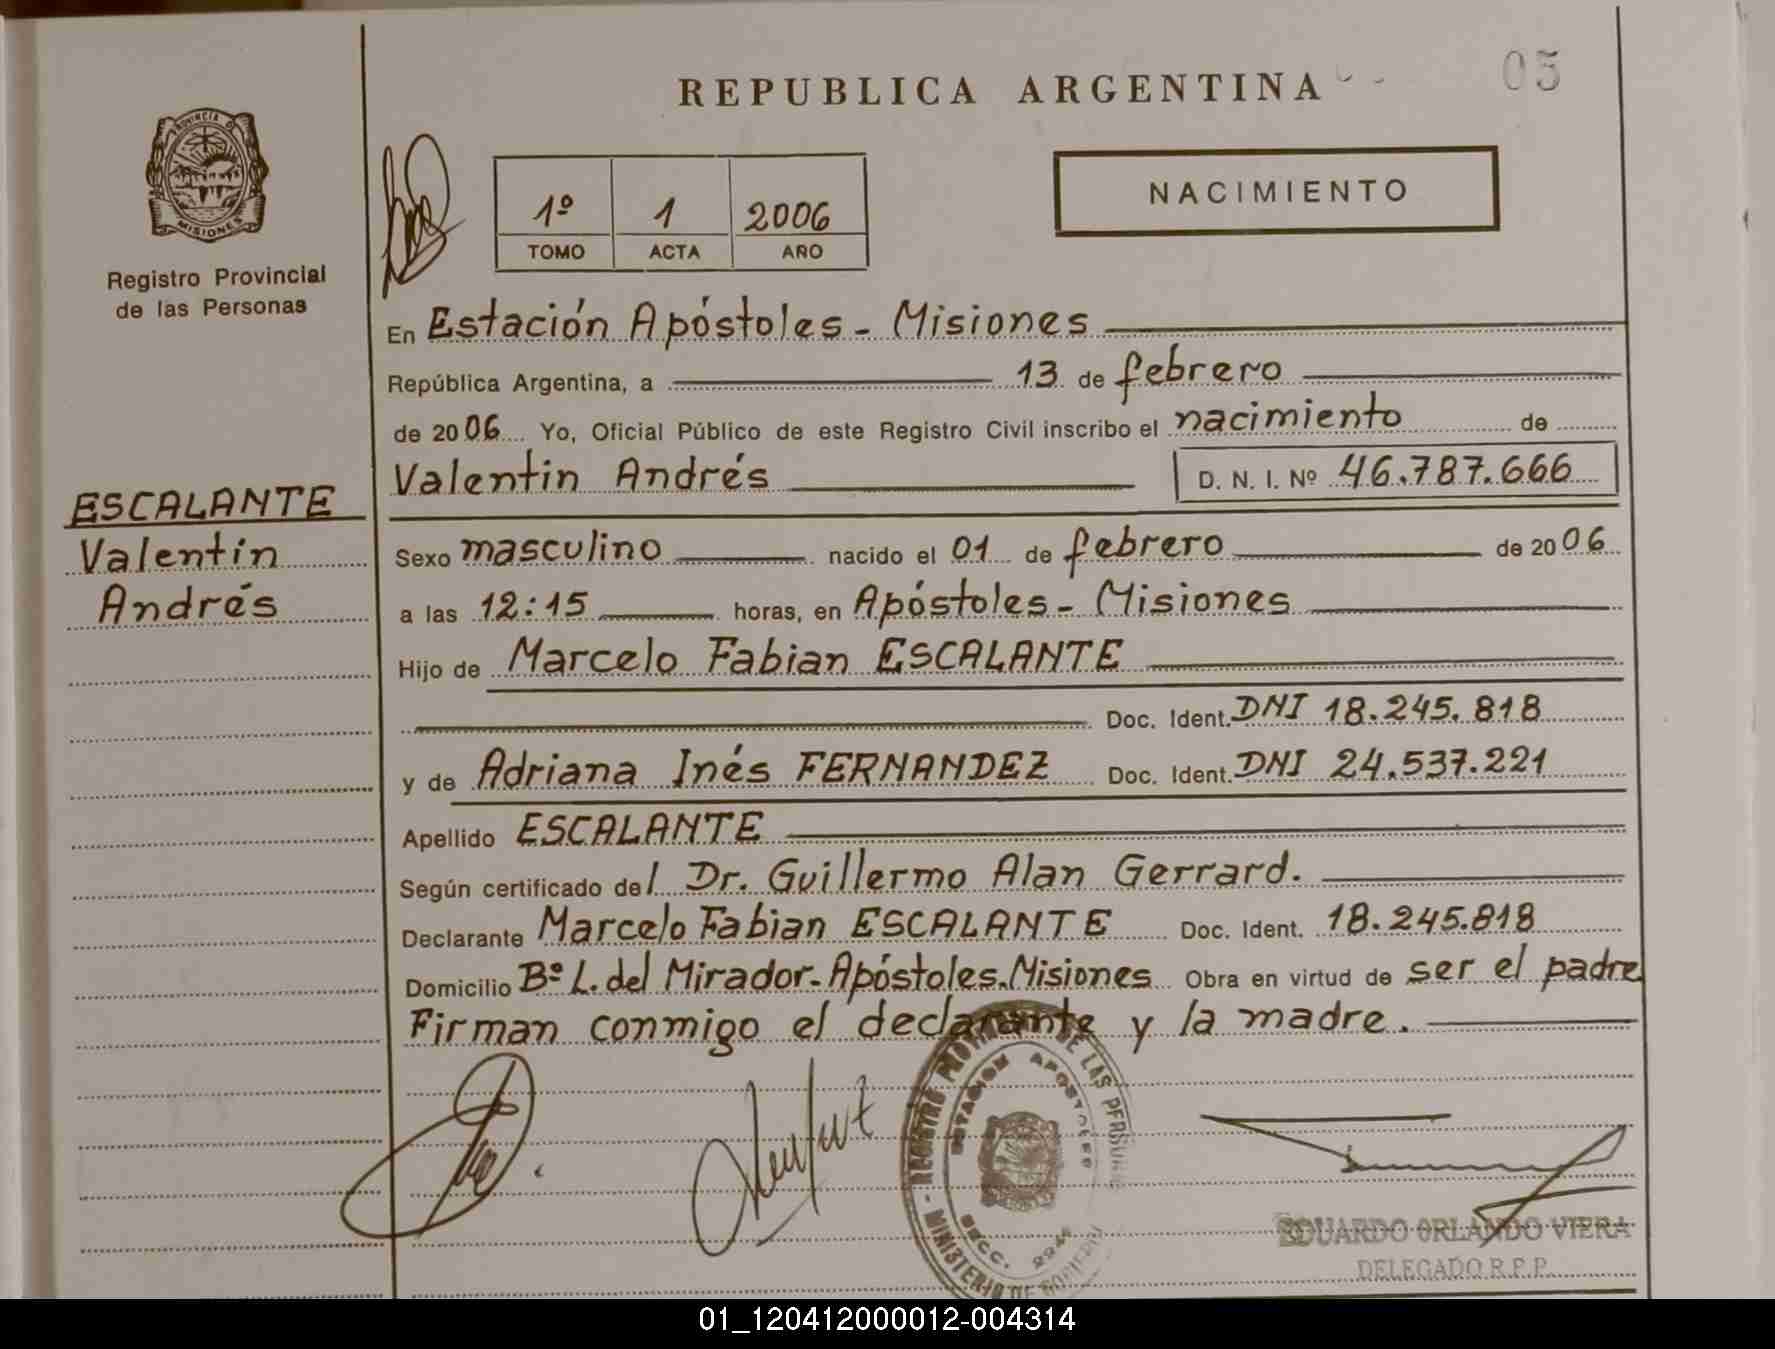 REPUBLICA ARGENTINA
05
PROVINCIA D
MISIONES
Registro Provincial
de las Personas
1º 1 2006
TOMO ACTA AÑO
NACIMIENTO
En Estación Apóstoles - Misiones
República Argentina, a 13 de febrero
de 2006 Yo, Oficial Público de este Registro Civil inscribo el nacimiento de
Valentin Andrés D. N. I. Nº 46.787.666
ESCALANTE
Valentín
Andrés
Sexo masculino nacido el 01 de febrero de 2006
a las 12:15 horas, en Apóstoles - Misiones
Hijo de Marcelo Fabian ESCALANTE
Doc. Ident. DNI 18.245.818
y de Adriana Inés FERNANDEZ Doc. Ident. DNI 24.537.221
Apellido ESCALANTE
Según certificado del Dr. Guillermo Alan Gerrard.
Declarante Marcelo Fabian ESCALANTE Doc. Ident. 18.245.818
Domicilio Bº L. del Mirador - Apóstoles. Misiones Obra en virtud de ser el padre
Firman conmigo el declarante y la madre.
REGISTRO DE LAS
ESTACION APOSTOLES
SECC.
MINISTERIO DE GOBIERNO
EDUARDO ORLANDO VIERA
DELEGADO R.P.P.
01_120412000012-004314